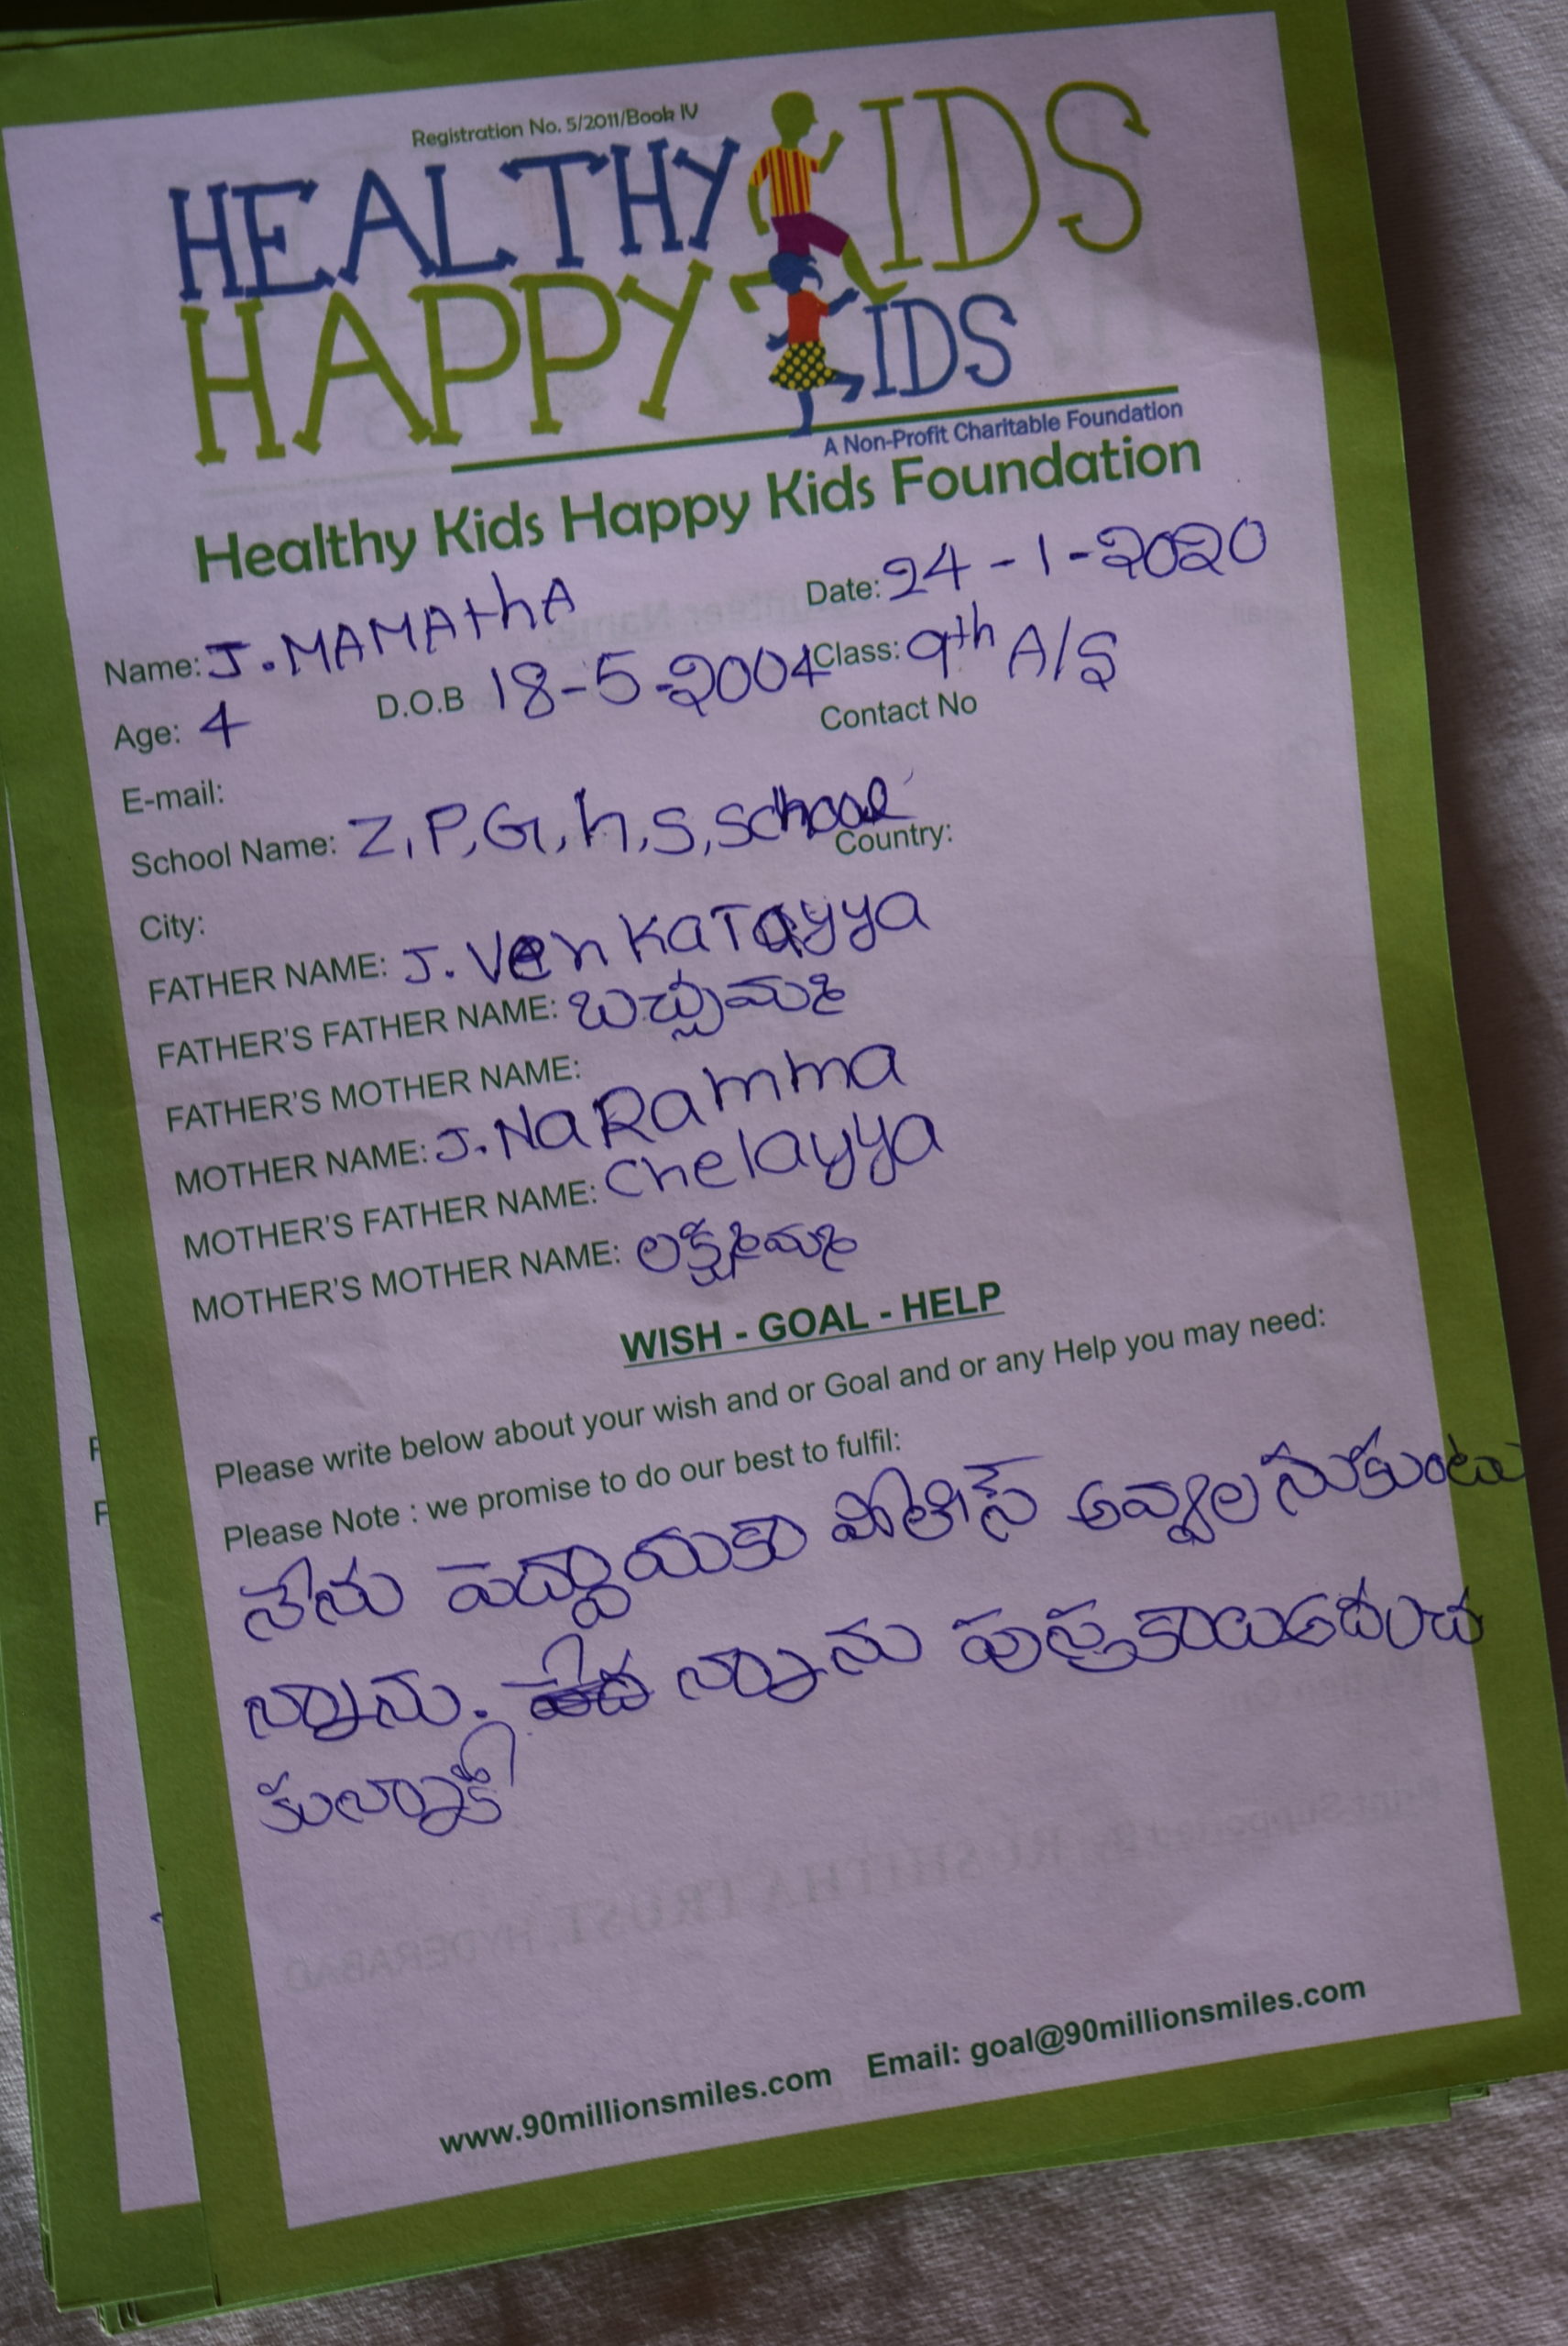 Registration No. 5/2011/Book IV
HEALTHY KIDS
HAPPY KIDS
A Non-Profit Charitable Foundation
Healthy Kids Happy Kids Foundation
Name: J.MAMAthA Date: 24-1-2020
Age: 4 D.O.B 18-5-2004 Class: 9th A/S
Contact No
E-mail:
School Name: Z,P,G,h,S,School
City: Country:
FATHER NAME: J.VenKaTayya
FATHER'S FATHER NAME: బచ్చమ్మ
FATHER'S MOTHER NAME:
MOTHER NAME: J.NaRamma
MOTHER'S FATHER NAME: Chelayya
MOTHER'S MOTHER NAME: లక్ష్మమ్మ
WISH - GOAL - HELP
Please write below about your wish and or Goal and or any Help you may need:
Please Note : we promise to do our best to fulfil:
నేను పెద్దాయకా పోలిస్ అవ్వాలనుకుంటు
న్నాను. న్నాను పుస్తకాలు
www.90millionsmiles.com Email: goal@90millionsmiles.com